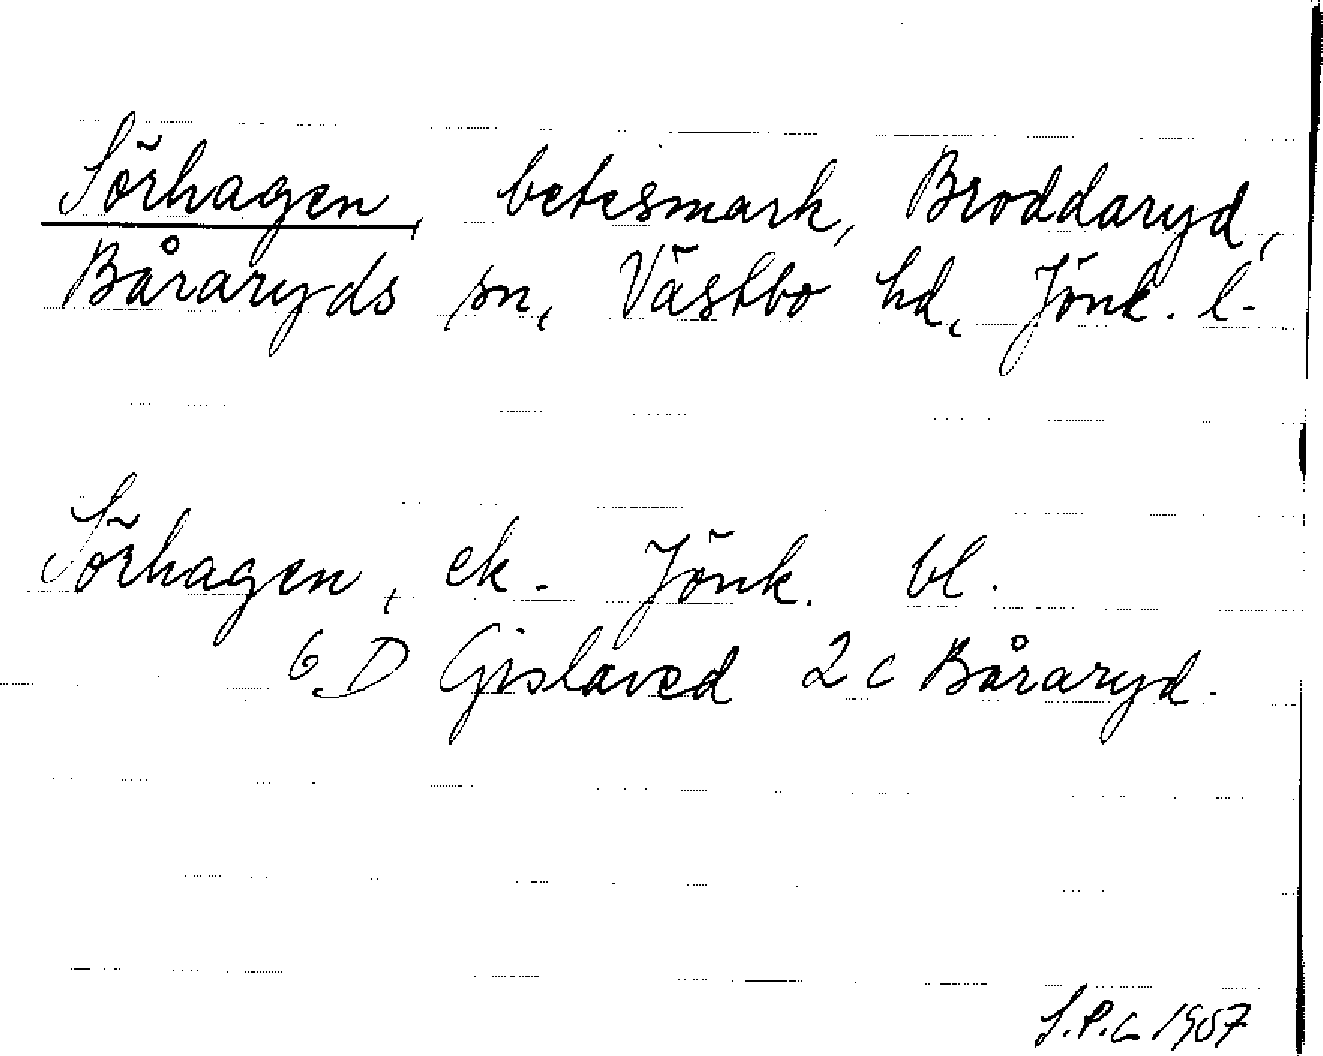 Sörhagen, betesmark, Broddaryd,
Båraryds sn, Västbo hd, Jönk. l.
Sörhagen, ek. Jönk. bl.
6 D Gislaved 2 c Båraryd.
1957